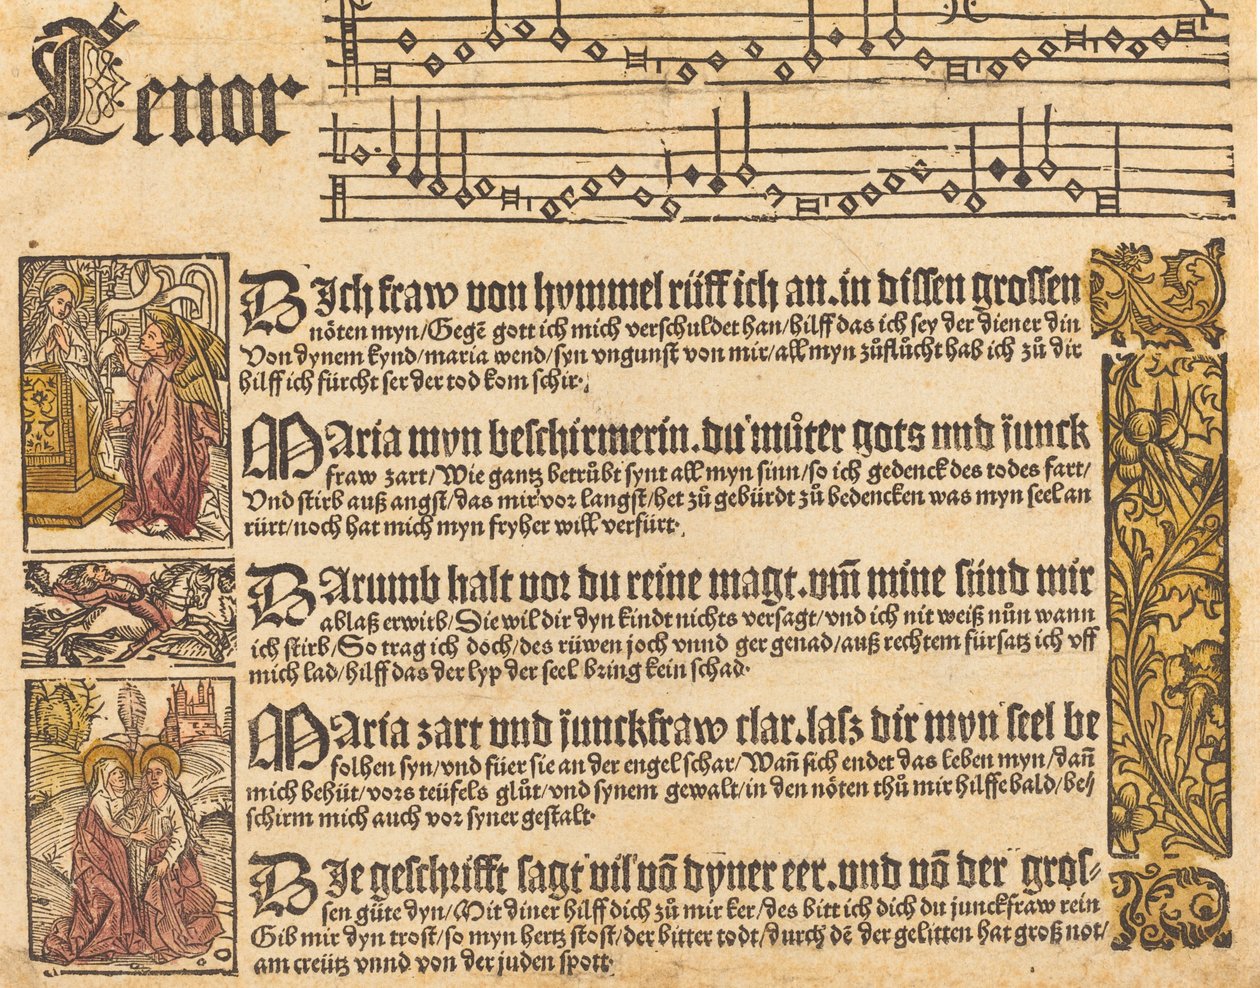 Tenor
DIch fraw von hymmel rüff ich an. in dissen grossen
nöten myn/Gegẽ gott ich mich verschuldet han/hilff das ich sey der diener din
Von dynem kynd/maria wend/syn vngunst von mir/all myn zůflůcht hab ich zů dir
hilff ich fürcht ser der tod kom schir.
MAria myn beschirmerin. du můter gots vnd junck
fraw zart/Wie gantz betrůbt synt all myn sinn/so ich gedenck des todes fart/
Vnd stirb auß angst/das mir vor langst/het zů gebürdt zů bedencken was myn seel an
rürt/noch hat mich myn fryher will verfürt.
DArumb halt vor du reine magt. vm̃ mine sünd mir
ablaß erwirb/Die wil dir dyn kindt nichts versagt/vnd ich nit weiß nůn wann
ich stirb/So trag ich doch/des rüwen joch vnnd ger genad/auß rechtem fürsatz ich vff
mich lad/hilff das der lyp der seel bring kein schad.
MAria zart vnd junckfraw clar. lasz dir myn seel be
folhen syn/vnd füer sie an der engel schar/Wañ sich endet das leben myn/dañ
mich behüt/vors teüfels glůt/vnd synem gewalt/in den nöten thů mir hilffe bald/be/
schirm mich auch vor syner gestalt.
DIe geschrifft sagt vil võ dyner eer. vnd võ der gros-
sen güte dyn/Mit diner hilff dich zů mir ker/des bitt ich dich du junckfraw rein
Gib mir dyn trost/so myn hertz stost/der bitter todt/durch dẽ der gelitten hat groß not/
am creütz vnnd von der juden spott.